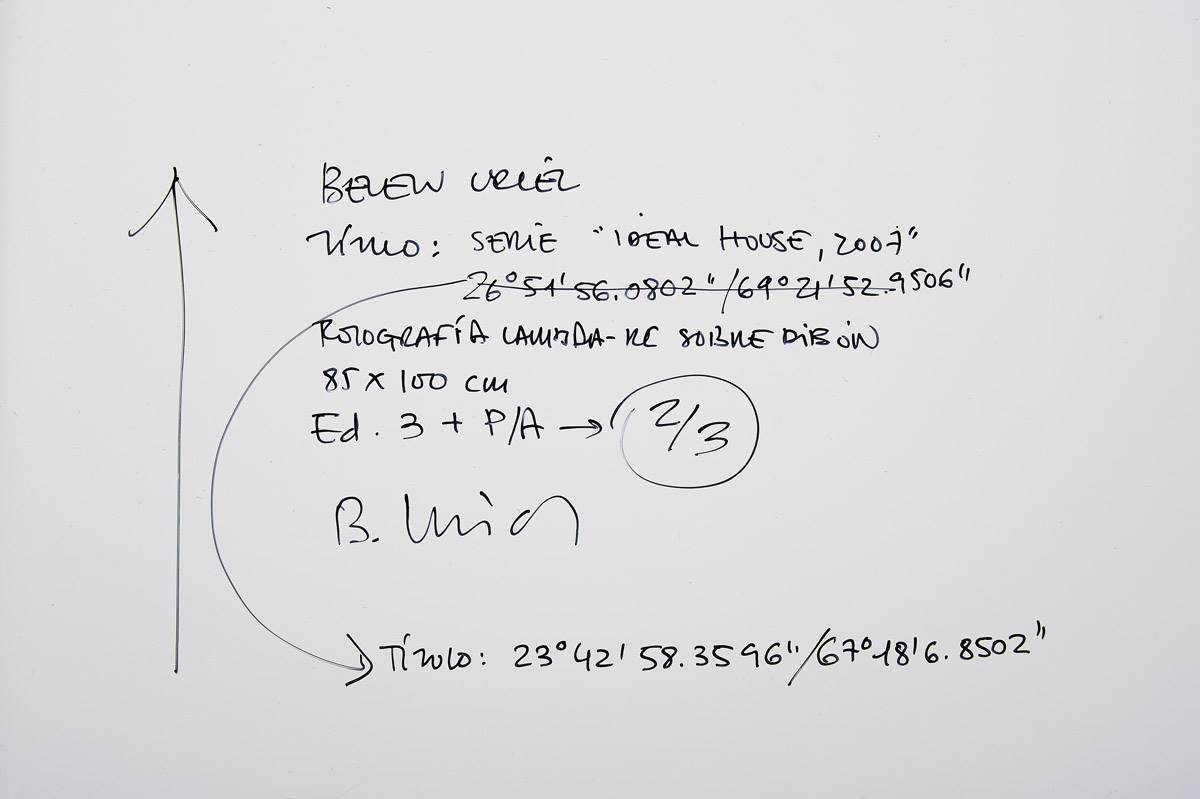 BELEN URIEL
TÍTULO: SERIE "IDEAL HOUSE, 2007"
26°54'56.0802"/69°21'52.9506"
FOTOGRAFÍA LAMBDA-RC SOBRE DIBON
85 x 100 cm
Ed. 3 + P/A → 2/3
B. Uriel
TÍTULO: 23°42'58.3596"/67°18'6.8502"